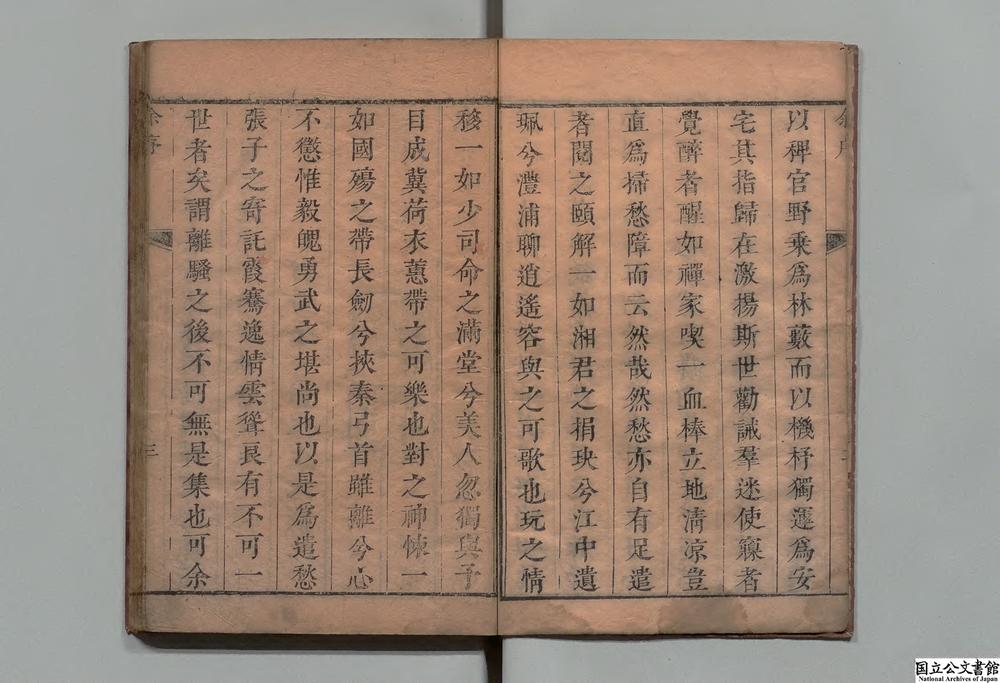 以稗官野乘爲林藪而以機杼獨運爲安
宅其指歸在激揚斯世勸誡羣迷使寱者
覺醉者醒如禪家喫一血棒立地淸凉豈
直爲掃愁障而云然哉然愁亦自有足遣
者閱之頤解一如湘君之捐玦兮江中遺
珮兮澧浦聊逍遙容與之可歌也玩之情
移一如少司命之滿堂兮美人忽獨與予
目成冀荷衣蕙帶之可樂也對之神悚一
如國殤之帶長劒兮挾秦弓首雖離兮心
不懲惟毅魄勇武之堪尚也以是爲遣愁
張子之寄託霞騫逸情雲聳良有不可一
世者矣謂離騷之後不可無是集也可余
余序
三
国立公文書館
National Archives of Japan